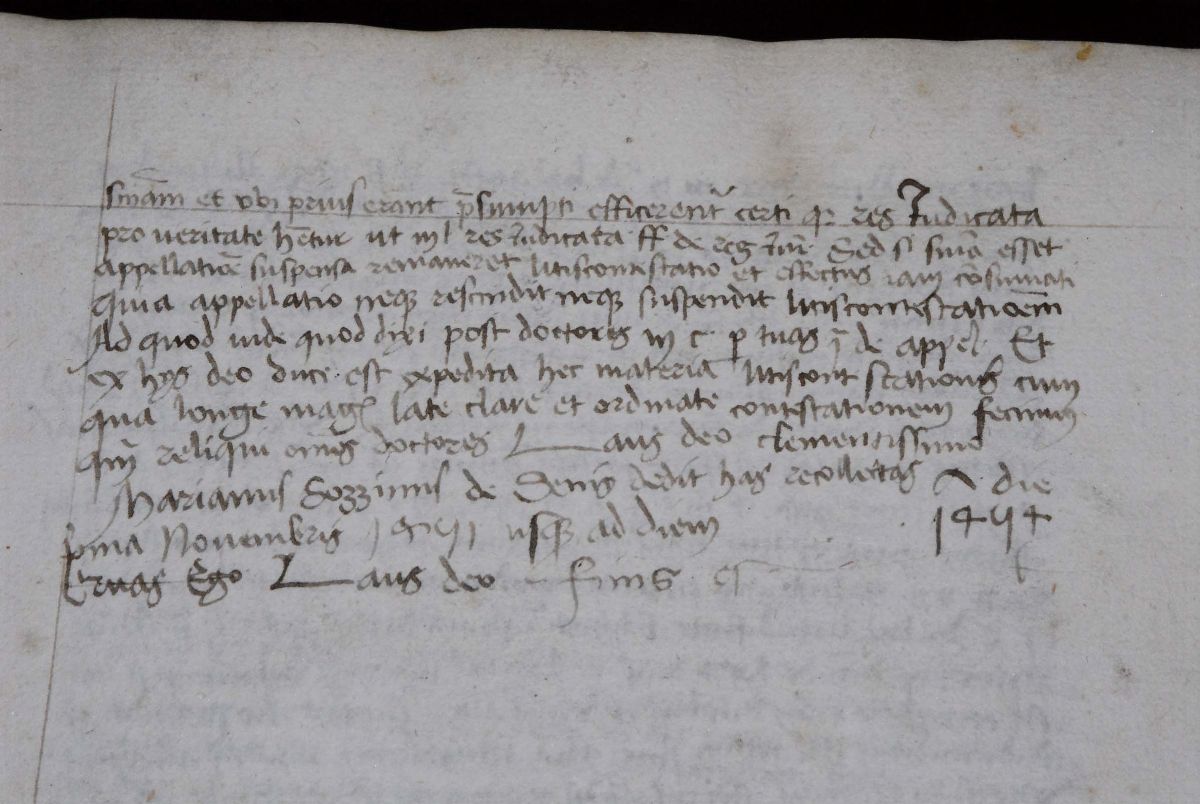 sniam et vbi prius erant psumpti efficerent certi q res Iudicata
pro veritate hētur ut in l res iudicata ff de reg iur Sed si snia esset
appellatiōe suspensa remaneret litiscontestatio et effectus iam cōsumati
quia appellatio neq rescindit neq suspendit litiscontestationem
Ad quod vide quod dixi post doctores in c p tuas de appel Et
ex hys deo duce est expedita hec materia litiscontestationis cum
qua longe mag late clare et ordinate contestationem
qm reliqui omnes doctores Laus deo clementissime
Marianus Sozzinus de Senis dedit has recollectas A die
pma Novembris usq ad diem 1494
Ego Laus deo finis